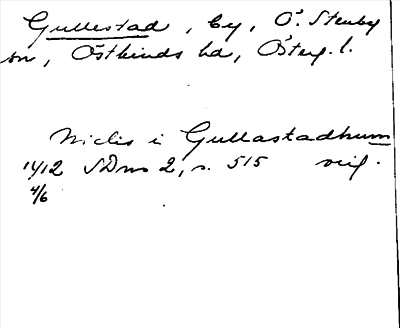 Gullestad, by, Ö. Stenby
sn, Östkinds hd, Österg. l.
Niclis i Gullastadhum
1412 SDns 2, s. 515 orig.
4/6